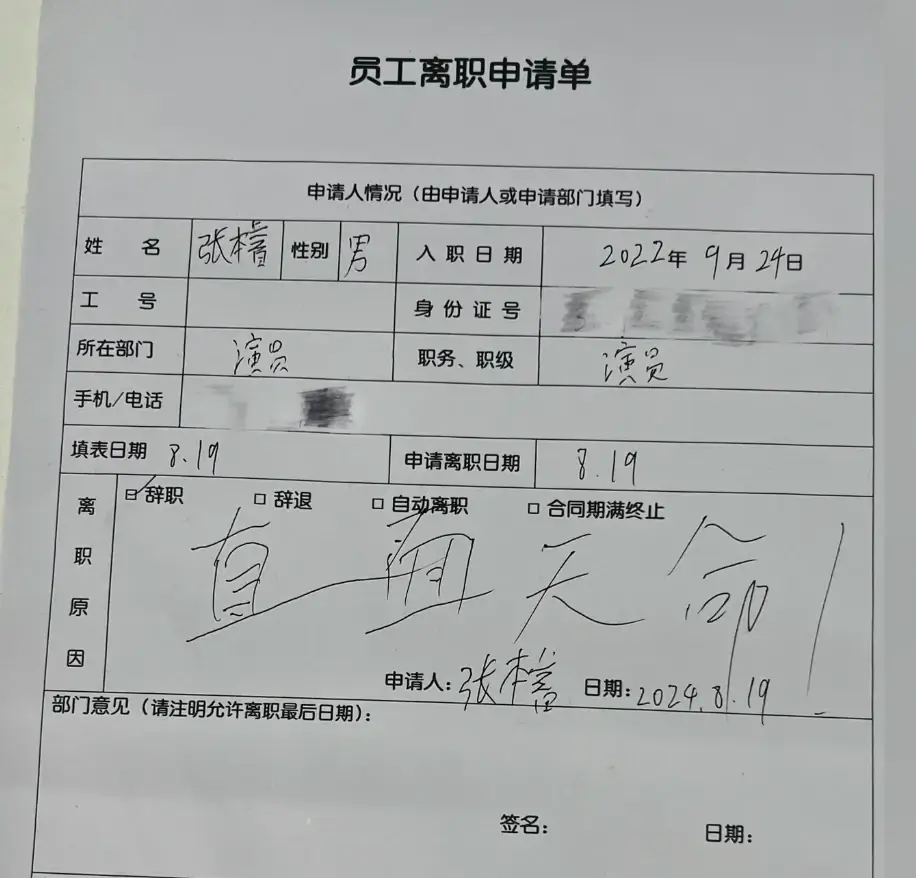 员工离职申请单
申请人情况（由申请人或申请部门填写）
姓 名 张 性别 男 入职日期 2022年9月24日
工 号 身份证号
所在部门 演员 职务、职级 演员
手机/电话
填表日期 8.19 申请离职日期 8.19
离职原因 辞职 辞退 自动离职 合同期满终止
直面天命！
申请人：张本 日期：2024.8.19
部门意见（请注明允许离职最后日期）：
签名： 日期：